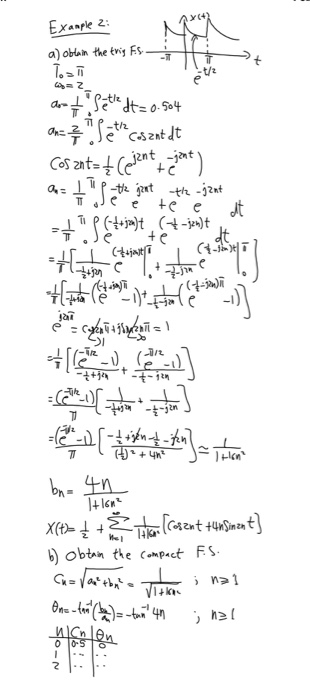 Example 2:
x(t)
a) obtain the trig F.S.
-π π t
T₀ = π
e^{-t/2}
ω₀ = 2
a₀ = 1/π ₀∫^π e^{-t/2} dt = 0.504
aₙ = 2/π ₀∫^π e^{-t/2} cos2nt dt
cos2nt = 1/2 (e^{j2nt} + e^{-j2nt})
aₙ = 1/π ₀∫^π e^{-t/2} e^{j2nt} + e^{-t/2} e^{-j2nt} dt
= 1/π ₀∫^π e^{(-1/2+j2n)t} + e^{(-1/2-j2n)t} dt
= 1/π [ 1/(-1/2+j2n) e^{(-1/2+j2n)t} |₀^π + 1/(-1/2-j2n) e^{(-1/2-j2n)t} |₀^π ]
= 1/π [ 1/(-1/2+j2n) (e^{(-1/2+j2n)π} -1) + 1/(-1/2-j2n) (e^{(-1/2-j2n)π} -1) ]
e^{j2nπ} = cos2nπ + jsin2nπ = 1
= 1/π [ (e^{-π/2} -1)/(-1/2+j2n) + (e^{-π/2} -1)/(-1/2-j2n) ]
= (e^{-π/2} -1)/π [ 1/(-1/2+j2n) + 1/(-1/2-j2n) ]
= (e^{-π/2} -1)/π [ (-1/2+j2n-1/2-j2n)/((1/2)² + 4n²) ] ≃ 1/(1+16n²)
bₙ = 4n/(1+16n²)
x(t) = 1/2 + ∑_{n=1}^∞ 1/(1+16n²) [cos2nt + 4n sin2nt]
b) Obtain the compact F.S.
Cₙ = √(aₙ² + bₙ²) = 1/√(1+16n²) ; n≥1
θₙ = -tan⁻¹(bₙ/aₙ) = -tan⁻¹ 4n ; n≥1
n Cₙ θₙ
0 0.5 0
1 .. ..
2 .. ..